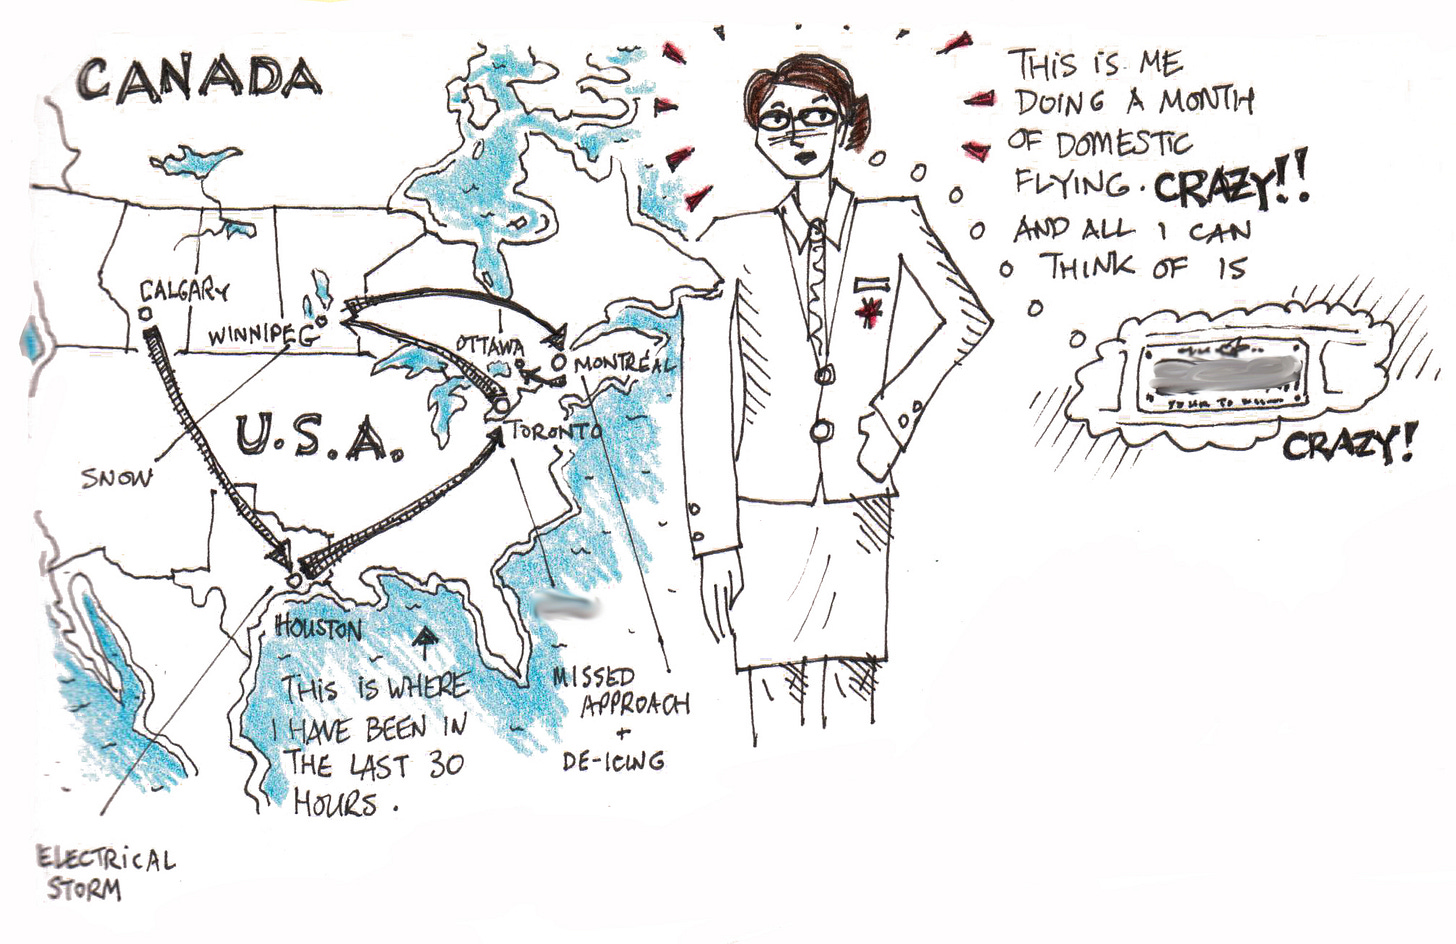 CANADA
CALGARY
WINNIPEG
OTTAWA
MONTRÉAL
TORONTO
U.S.A.
SNOW
HOUSTON
THIS IS WHERE
I HAVE BEEN IN
THE LAST 30
HOURS.
MISSED
APPROACH
+
DE-ICING
ELECTRICAL
STORM
THIS IS ME
DOING A MONTH
OF DOMESTIC
FLYING. CRAZY!!
AND ALL I CAN
THINK OF IS
CRAZY!